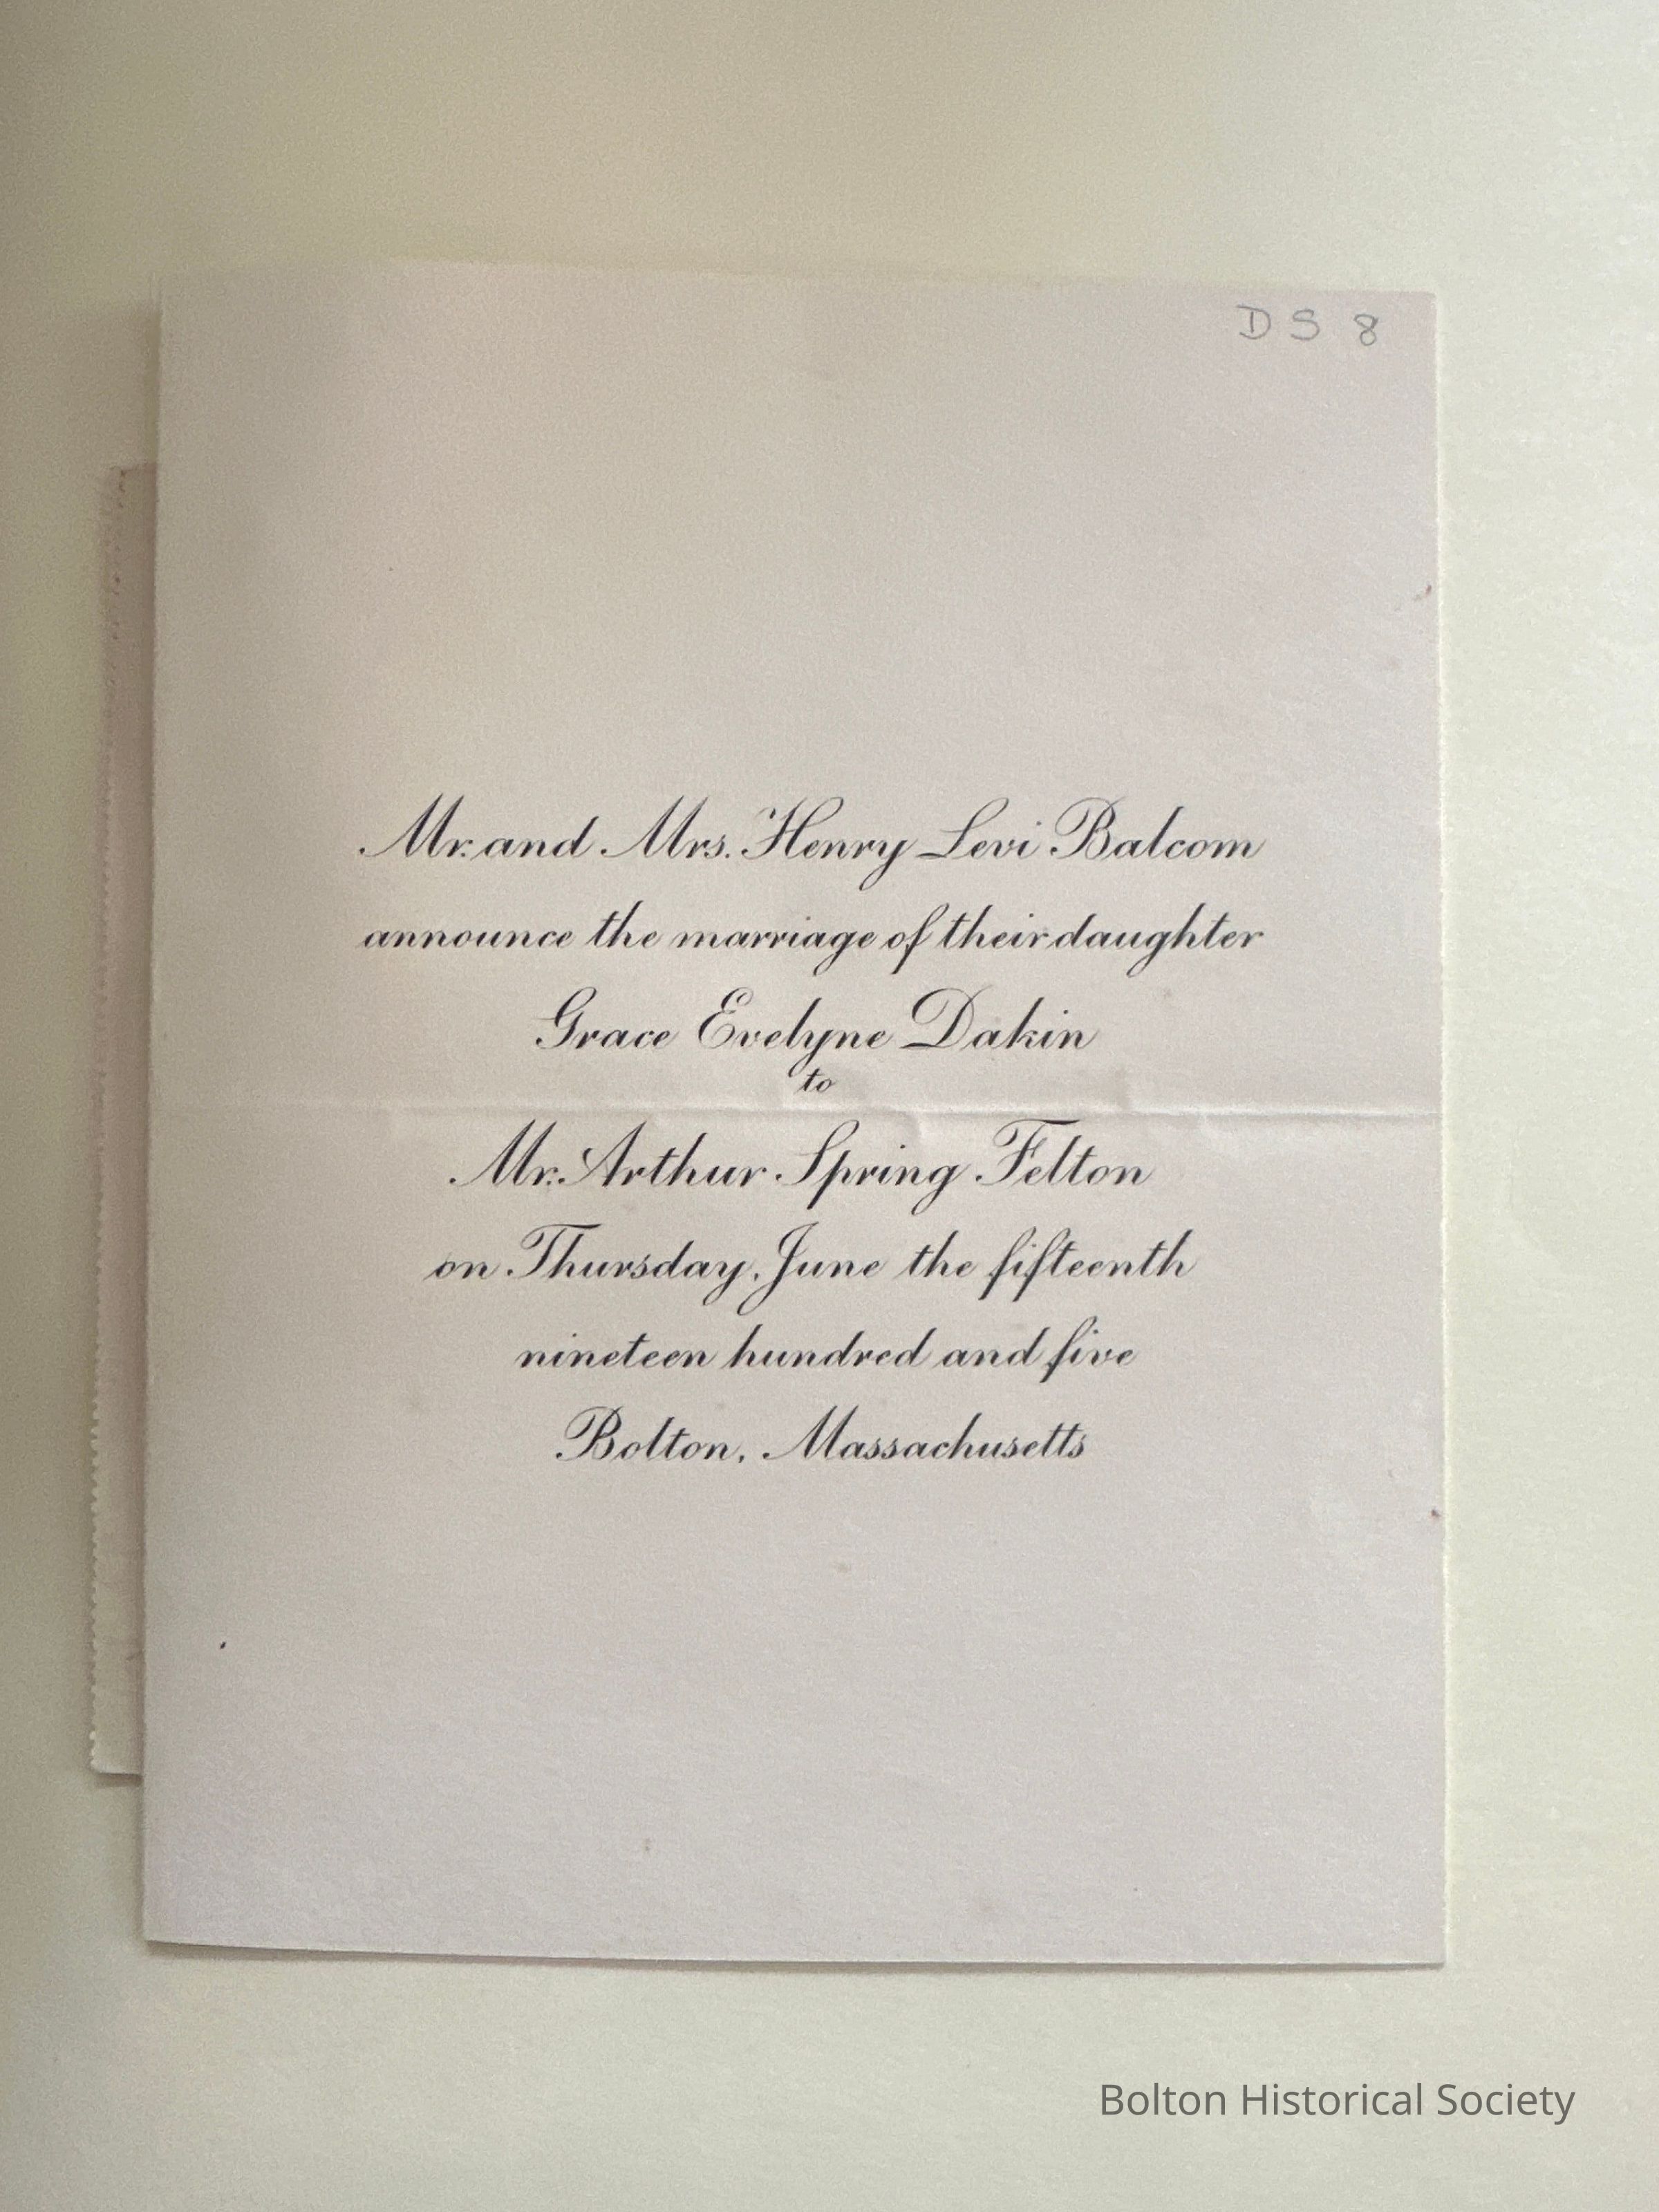 D S 8
Mr. and Mrs. Henry Levi Balcom
announce the marriage of their daughter
Grace Evelyne Dakin
to
Mr. Arthur Spring Felton
on Thursday, June the fifteenth
nineteen hundred and five
Bolton, Massachusetts
Bolton Historical Society